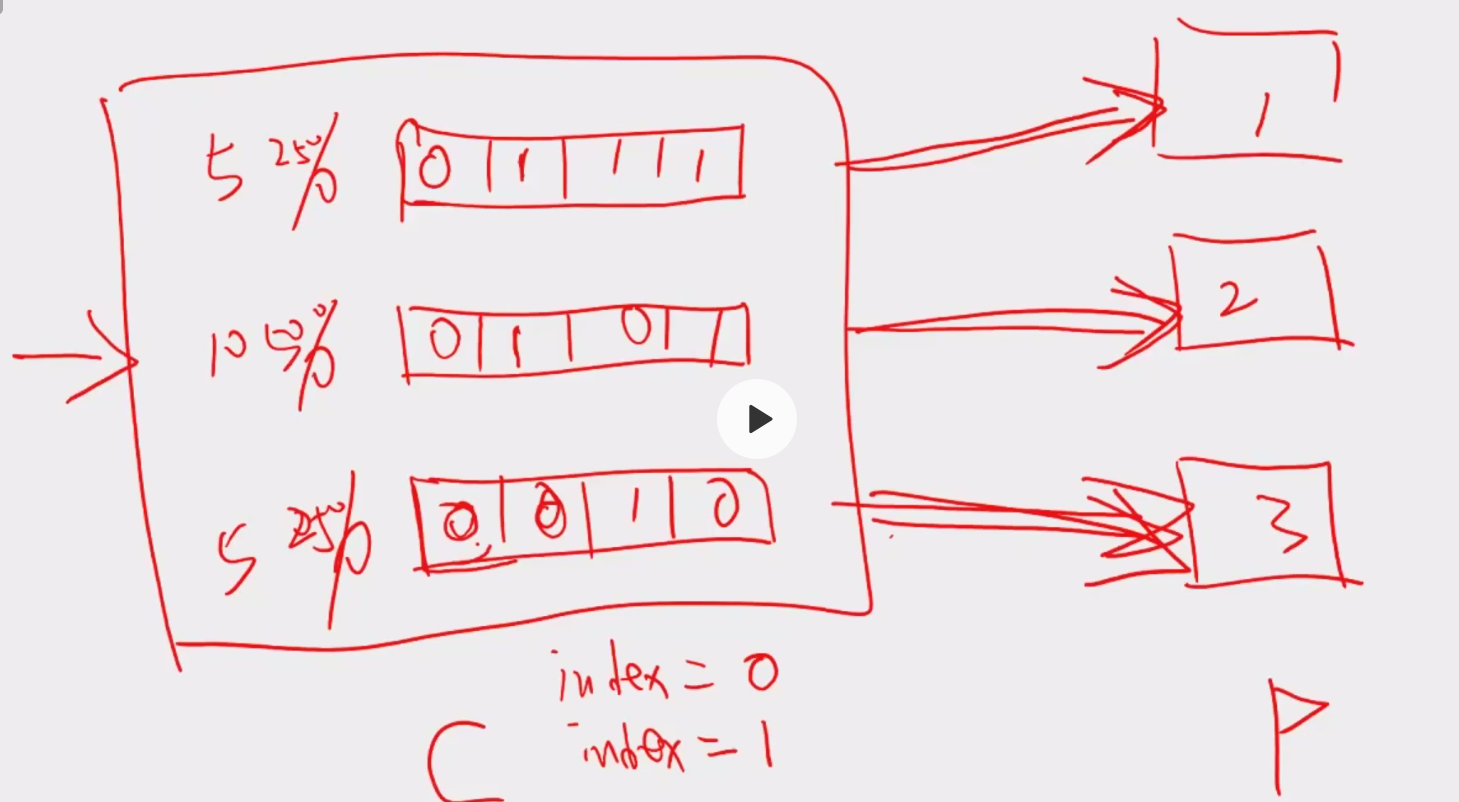 5 25% 0 1 1 1 1
1
10 50% 0 1 0 1
2
5 25% 0 0 1 0
3
index = 0
index = 1
C
P